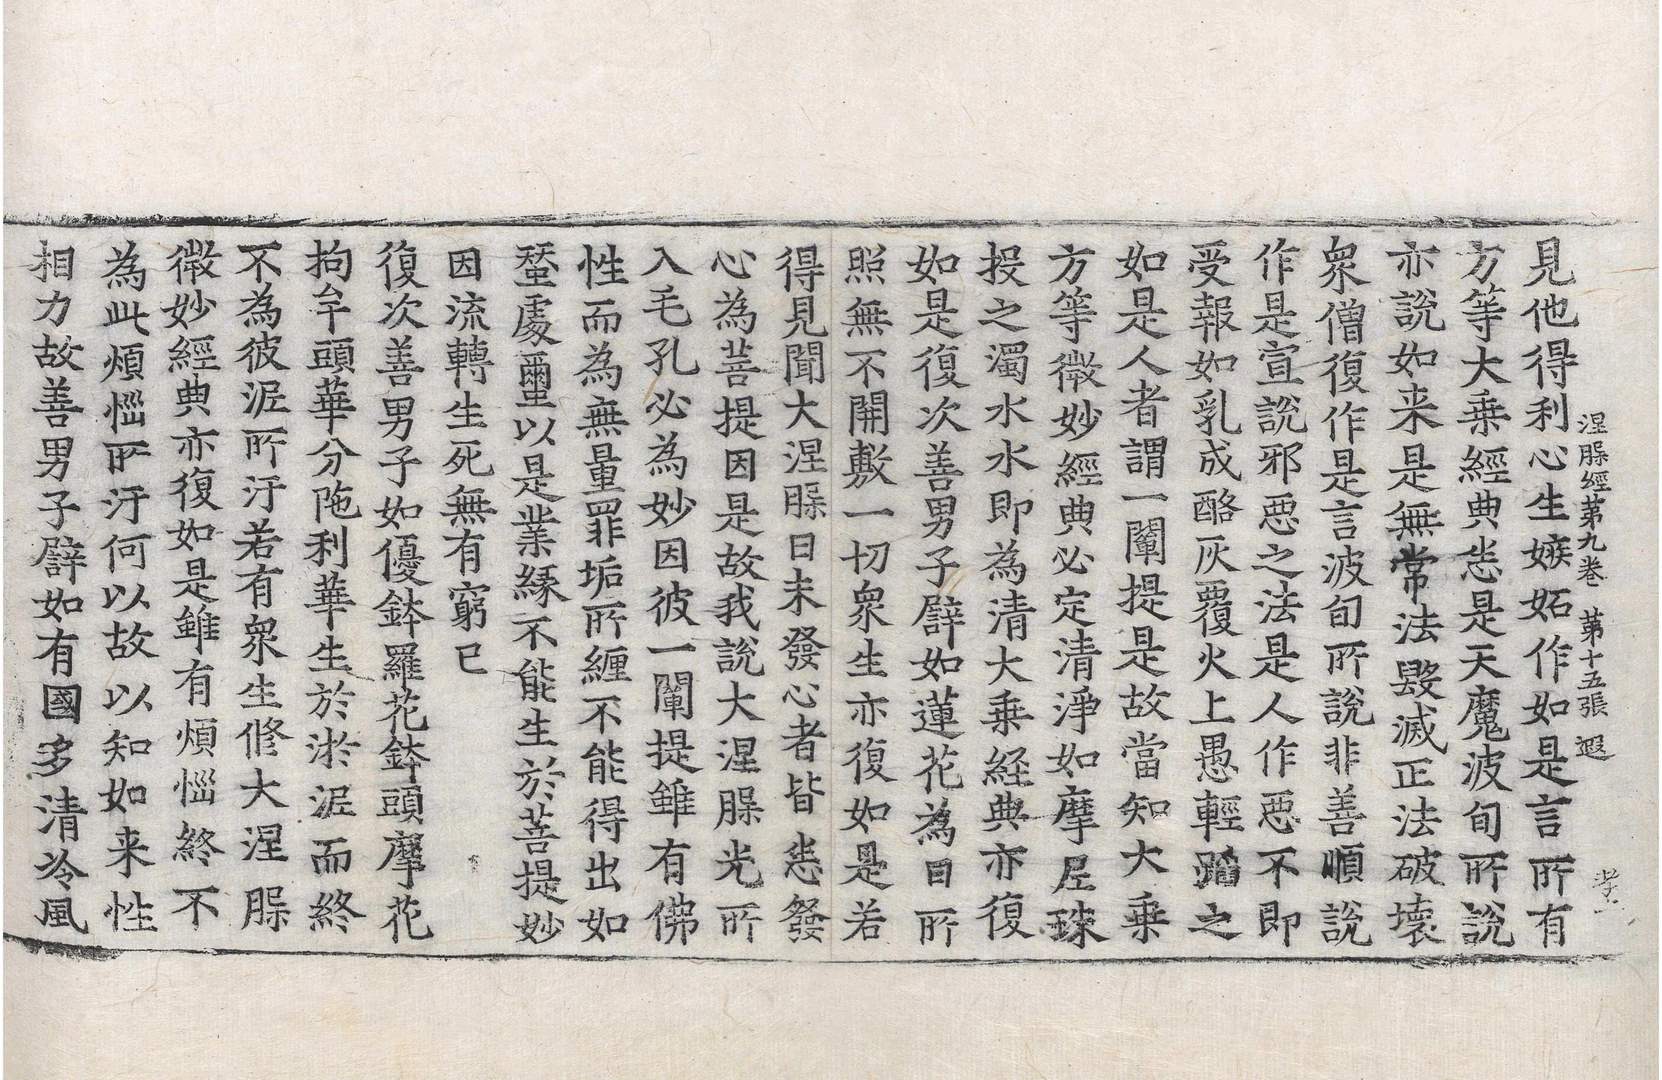 涅槃經第九卷 第十五張 遐
見他得利心生嫉妬作如是言所有
方等大乗經典悉是天魔波旬所說
亦說如来是無常法毀滅正法破壞
衆僧復作是言波旬所說非善順說
作是宣說邪惡之法是人作惡不即
受報如乳成酪灰覆火上愚輕蹈之
如是人者謂一闡提是故當知大乗
方等微妙經典必定清淨如摩尼珠
投之濁水水即為清大乗経典亦復
如是復次善男子譬如蓮花為日所
照無不開敷一切衆生亦復如是若
得見聞大涅槃日未發心者皆悉發
心為菩提因是故我說大涅槃光所
入毛孔必為妙因彼一闡提雖有佛
性而為無量罪垢所纏不能得出如
蚕處蠒以是業緣不能生於菩提妙
因流轉生死無有窮已
復次善男子如優鉢羅花鉢頭摩花
拘牟頭華分陁利華生於淤泥而終
不為彼泥所汙若有衆生修大涅槃
微妙經典亦復如是雖有煩惱終不
為此煩惱所汙何以故以知如来性
相力故善男子譬如有國多清冷風